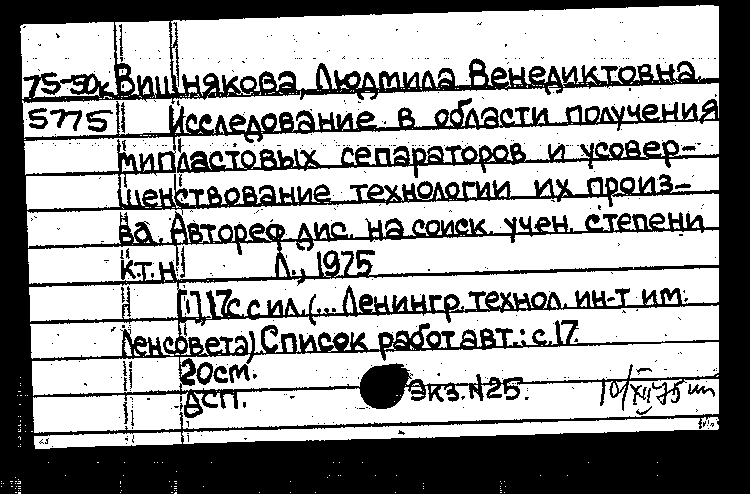 75-50к Вишнякова, Людмила Венедиктовна.
5775 Исследование в области получения
мипластовых сепараторов и усовер-
шенствование технологии их произ-
ва. Автореф дис. на соиск. учен. степени
к.т.н. Л., 1975
[1], 17с. с ил. (... Ленингр. технол. ин-т им.
Ленсовета) Список работ авт.: с. 17.
20см.
ДСП. Экз. №25. 10/XII 75